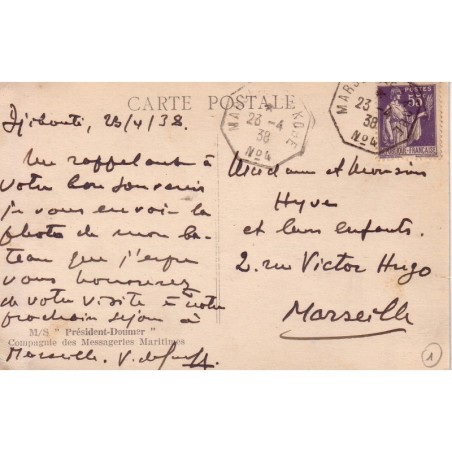 CARTE POSTALE
Djibouti, 23/4/38.
Me rappelant à
votre bon souvenir
je vous envoie la
photo de mon ba-
teau que j'espère
vous honorerez
de votre visite à notre
prochain séjour à
Marseille.
M/S "Président-Doumer"
Compagnie des Messageries Maritimes
23 -4
38
No4
MARS
23
38
No4
POSTES
55c
REPUBLIQUE FRANÇAISE
Madame et Monsieur
Hyve
et leurs enfants.
2. rue Victor Hugo
Marseille
1